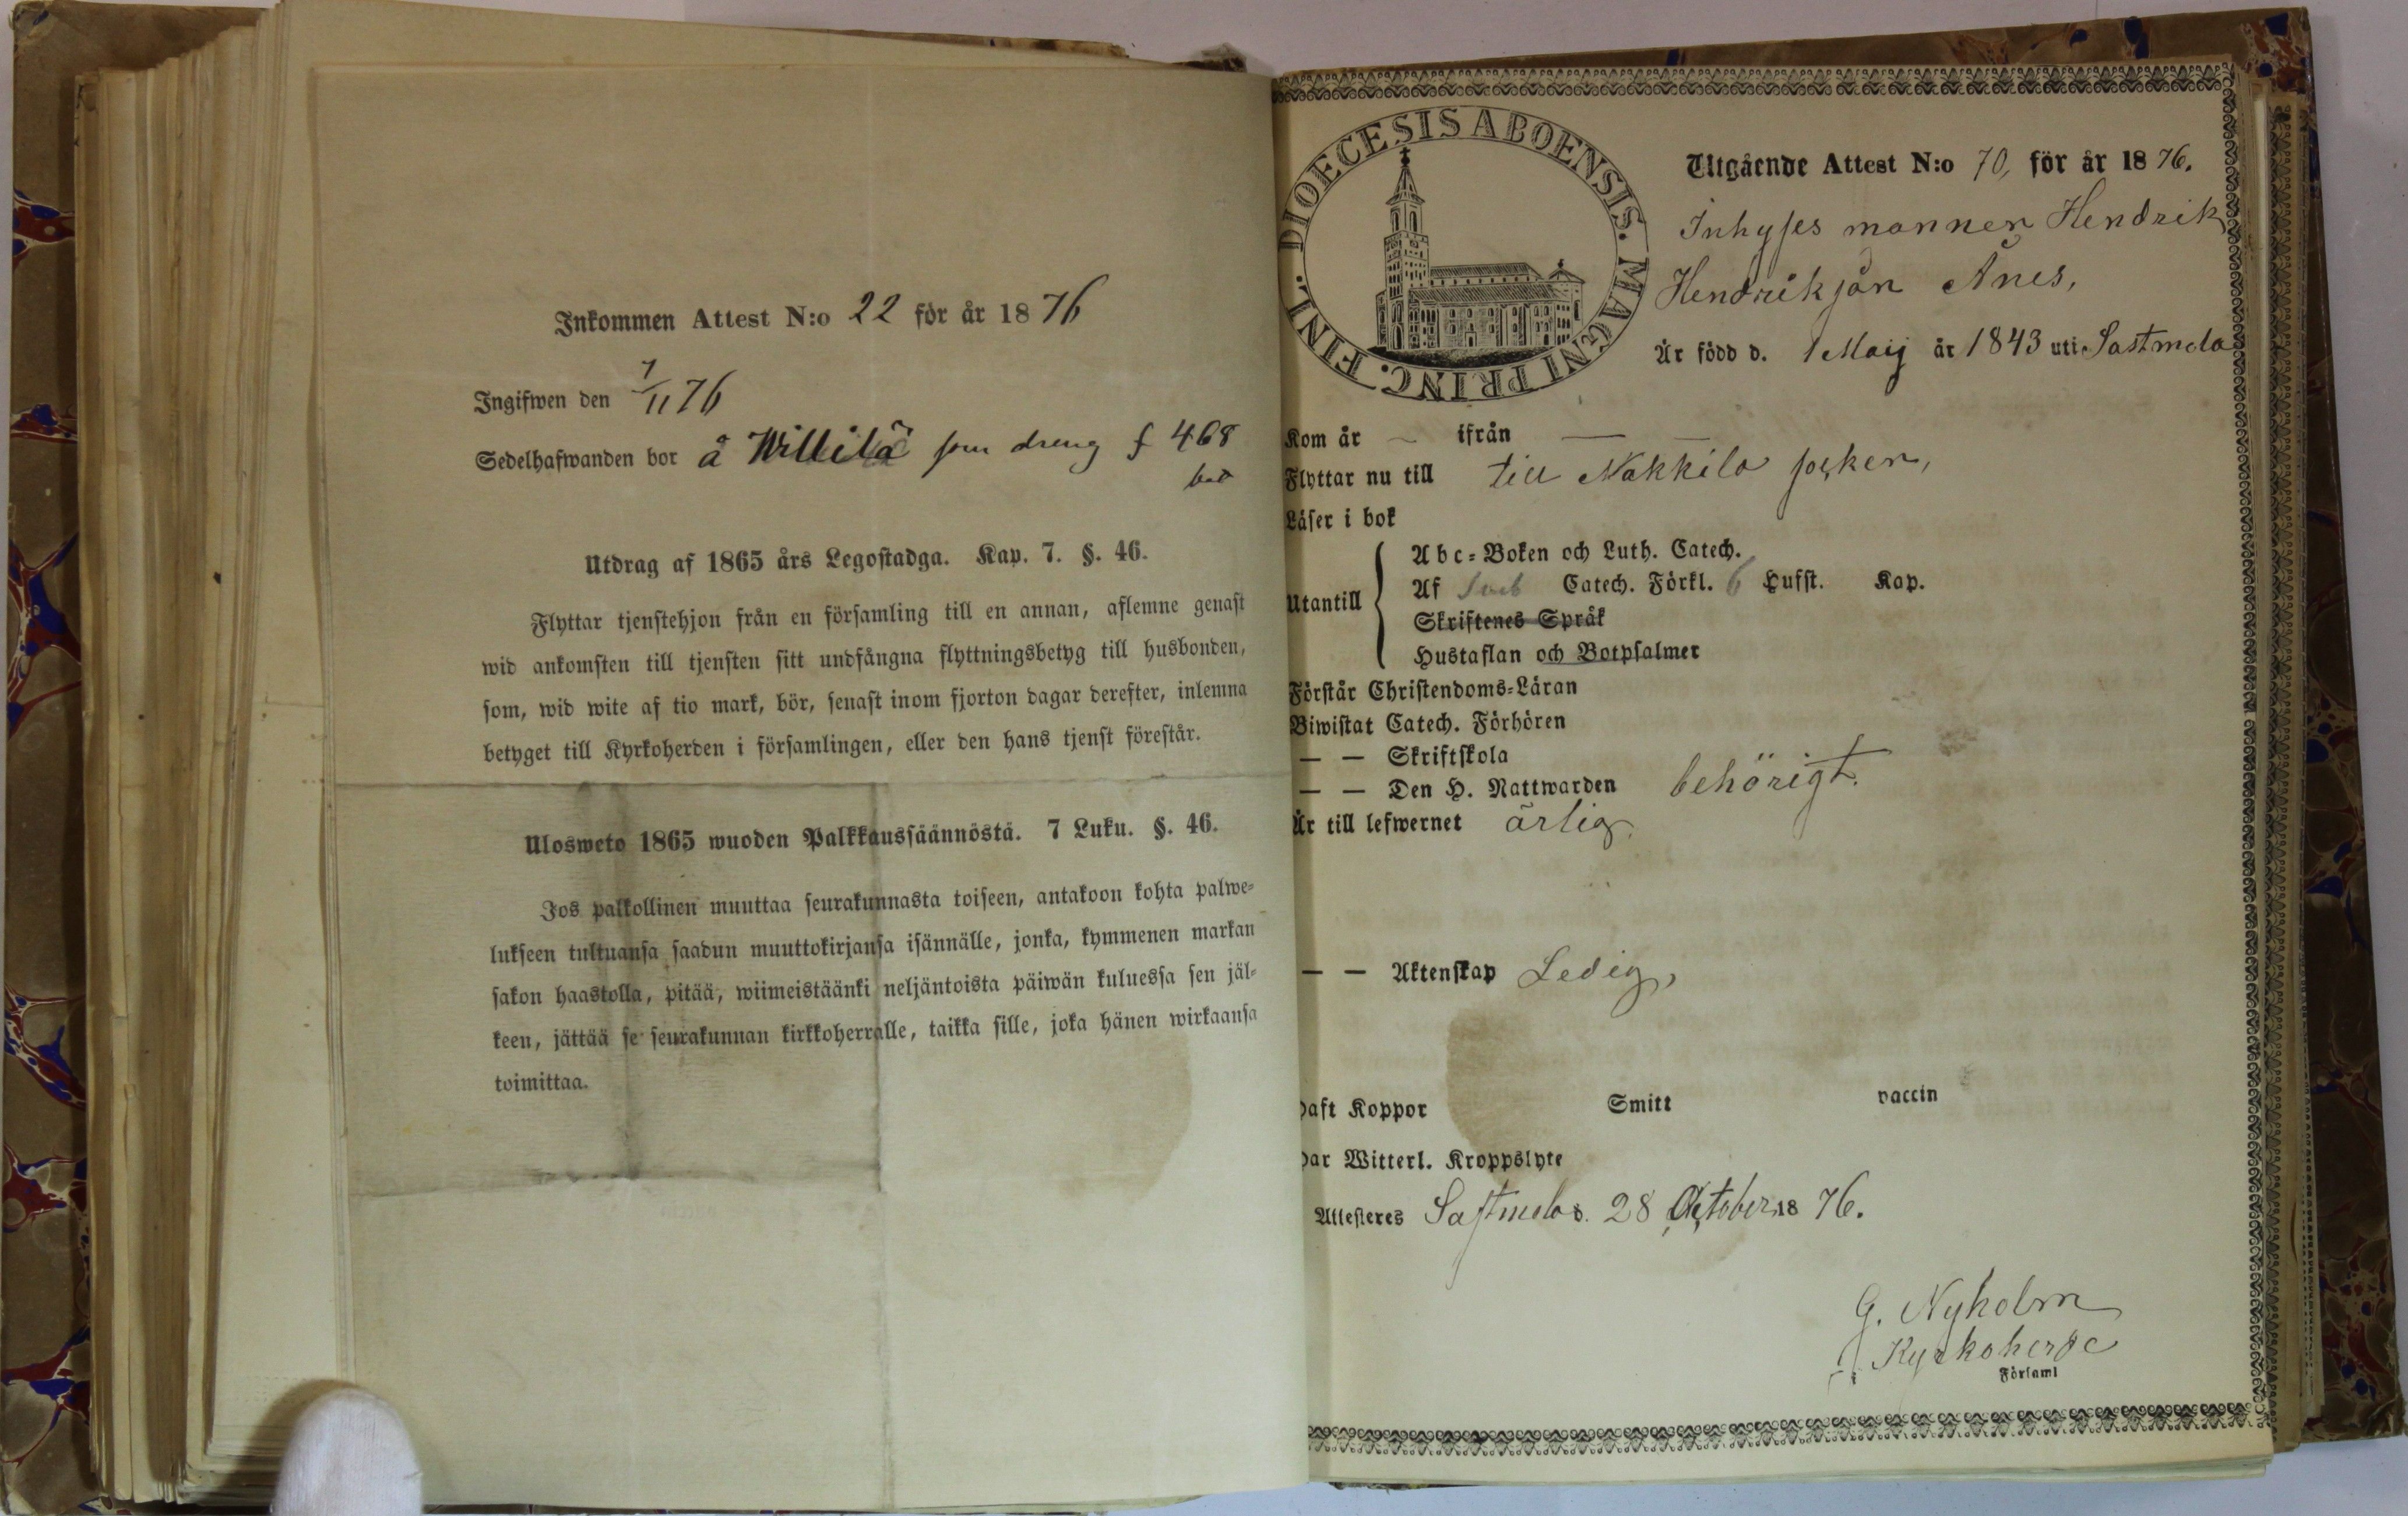 Inkommen Attest N:o 22 för år 1876
Ingifwen den 7/11 76
Sedelhafwanden bor å Willilä som dreng f 468
Utdrag af 1865 års Legostadga. Kap. 7. §. 46.
Flyttar tjenstehjon från en församling till en annan, aflemne genast
wid ankomsten till tjensten sitt undfångna flyttningsbetyg till husbonden,
som, wid wite af tio mark, bör, senast inom fjorton dagar derefter, inlemna
betyget till Kyrkoherden i församlingen, eller den hans tjenst förestår.
Ulosweto 1865 wuoden Palkkaussäännöstä. 7 Luku. §. 46.
Jos palkollinen muuttaa seurakunnasta toiseen, antakoon kohta palwe-
lukseen tultuansa saadun muuttokirjansa isännälle, jonka, kymmenen markan
sakon haastolla, pitää, wiimeistäänki neljäntoista päiwän kuluessa sen jäl-
keen, jättää se seurakunnan kirkkoherralle, taikka sille, joka hänen wirkaansa
toimittaa.
DIOECESIS ABOENSIS. MAGNI PRINC. FINL.
Utgående Attest N:o 70, för år 1876.
Inhyses mannen Hendrik
Hendriksson Änes,
Är född d. 1 Maij år 1843 uti Sastmola
Kom år — ifrån —
Flyttar nu till till Nakkila socken,
Läser i bok
Utantill
Abc-Boken och Luth. Catech.
Af Sveb Catech. Förkl. 6 Hufst. Kap.
Skriftenes Språk
Hustaflan och Botpsalmer
Förstår Christendoms-Läran
Biwistat Catech. Förhören
— — Skriftskola
— — Den H. Nattwarden behörigt.
Är till lefwernet ärlig.
— — Äktenskap Ledig,
Haft Koppor Smitt vaccin
Har Witterl. Kroppslyte
Attesteres Sastmola d. 28 October 1876.
G. Nyholm
Kyrkoherde
Församl